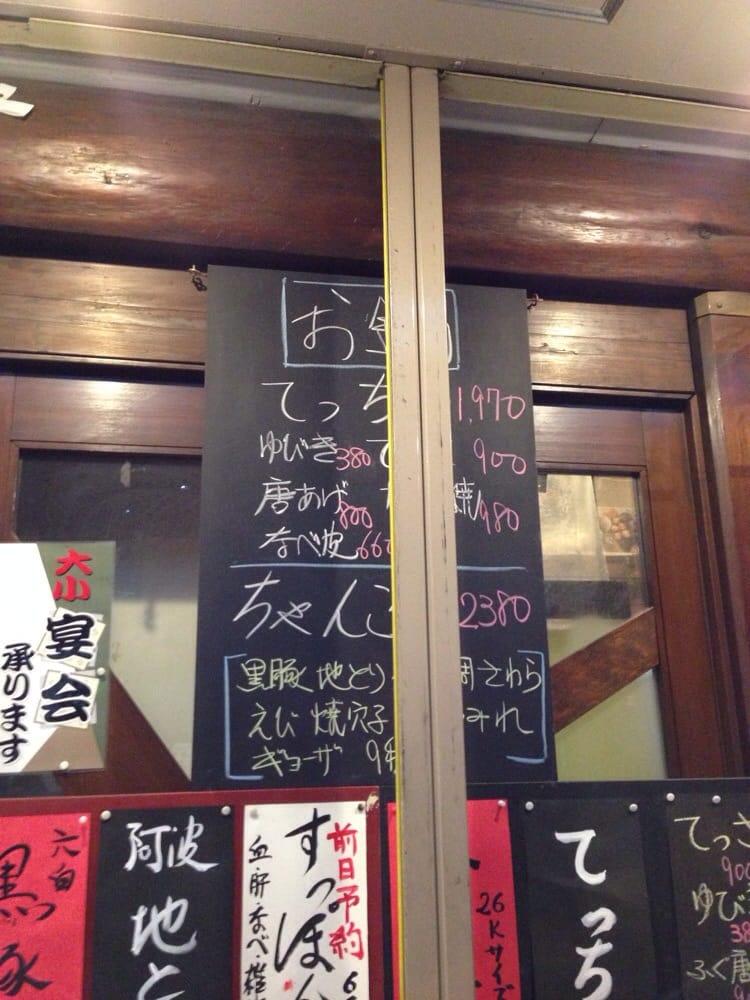 お
てっち 1,970
ゆびき 380 て 900
唐あげ 800 焼 980
なべ皮 660
ちゃんこ 2380
黒豚 地とり さわら
えび 焼穴子 みれ
ギョーザ 9種
大小
宴会
承ります
六白
黒豚
阿波
地と
前日予約
すっぽん
血・肝・なべ・雑
26Kサイズ
てっち
てっさ
900
ゆび
38
ふぐ唐